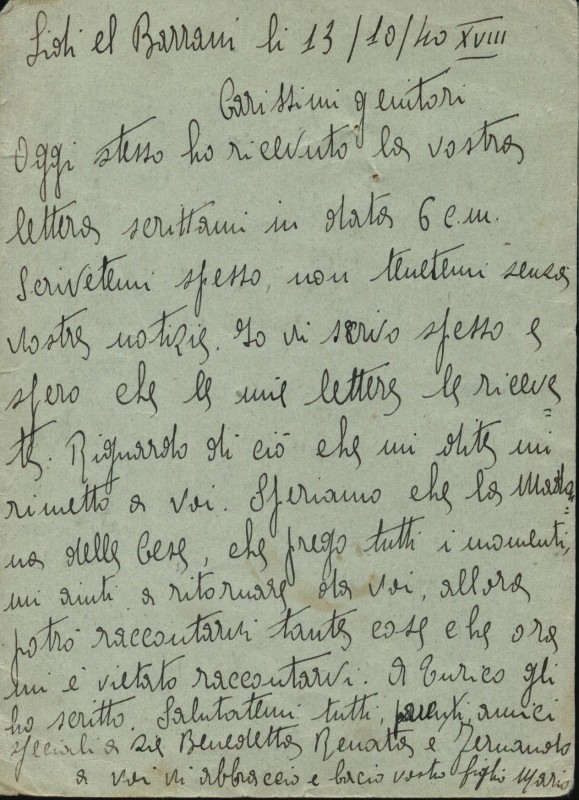 Sidi el Barrani li 13/10/40 XVIII
Carissimi genitori
Oggi stesso ho ricevuto la vostra
lettera scrittami in data 6 c.m.
Scrivetemi spesso, non tenetemi senza
vostre notizie. Io vi scrivo spesso e
spero che le mie lettere le riceve=
te. Riguardo di ciò che mi dite mi
rimetto a voi. Speriamo che la Mado=
na delle Cese, che prego tutti i momenti,
mi aiuti a ritornare da voi, allora
potrò raccontarvi tante cose che ora
mi è vietato raccontarvi. A Enrico gli
ho scritto. Salutatemi tutti, parenti, amici
speciali a zia Benedetta Renata e Fernando
a voi vi abbraccio e bacio vostro figlio Mario